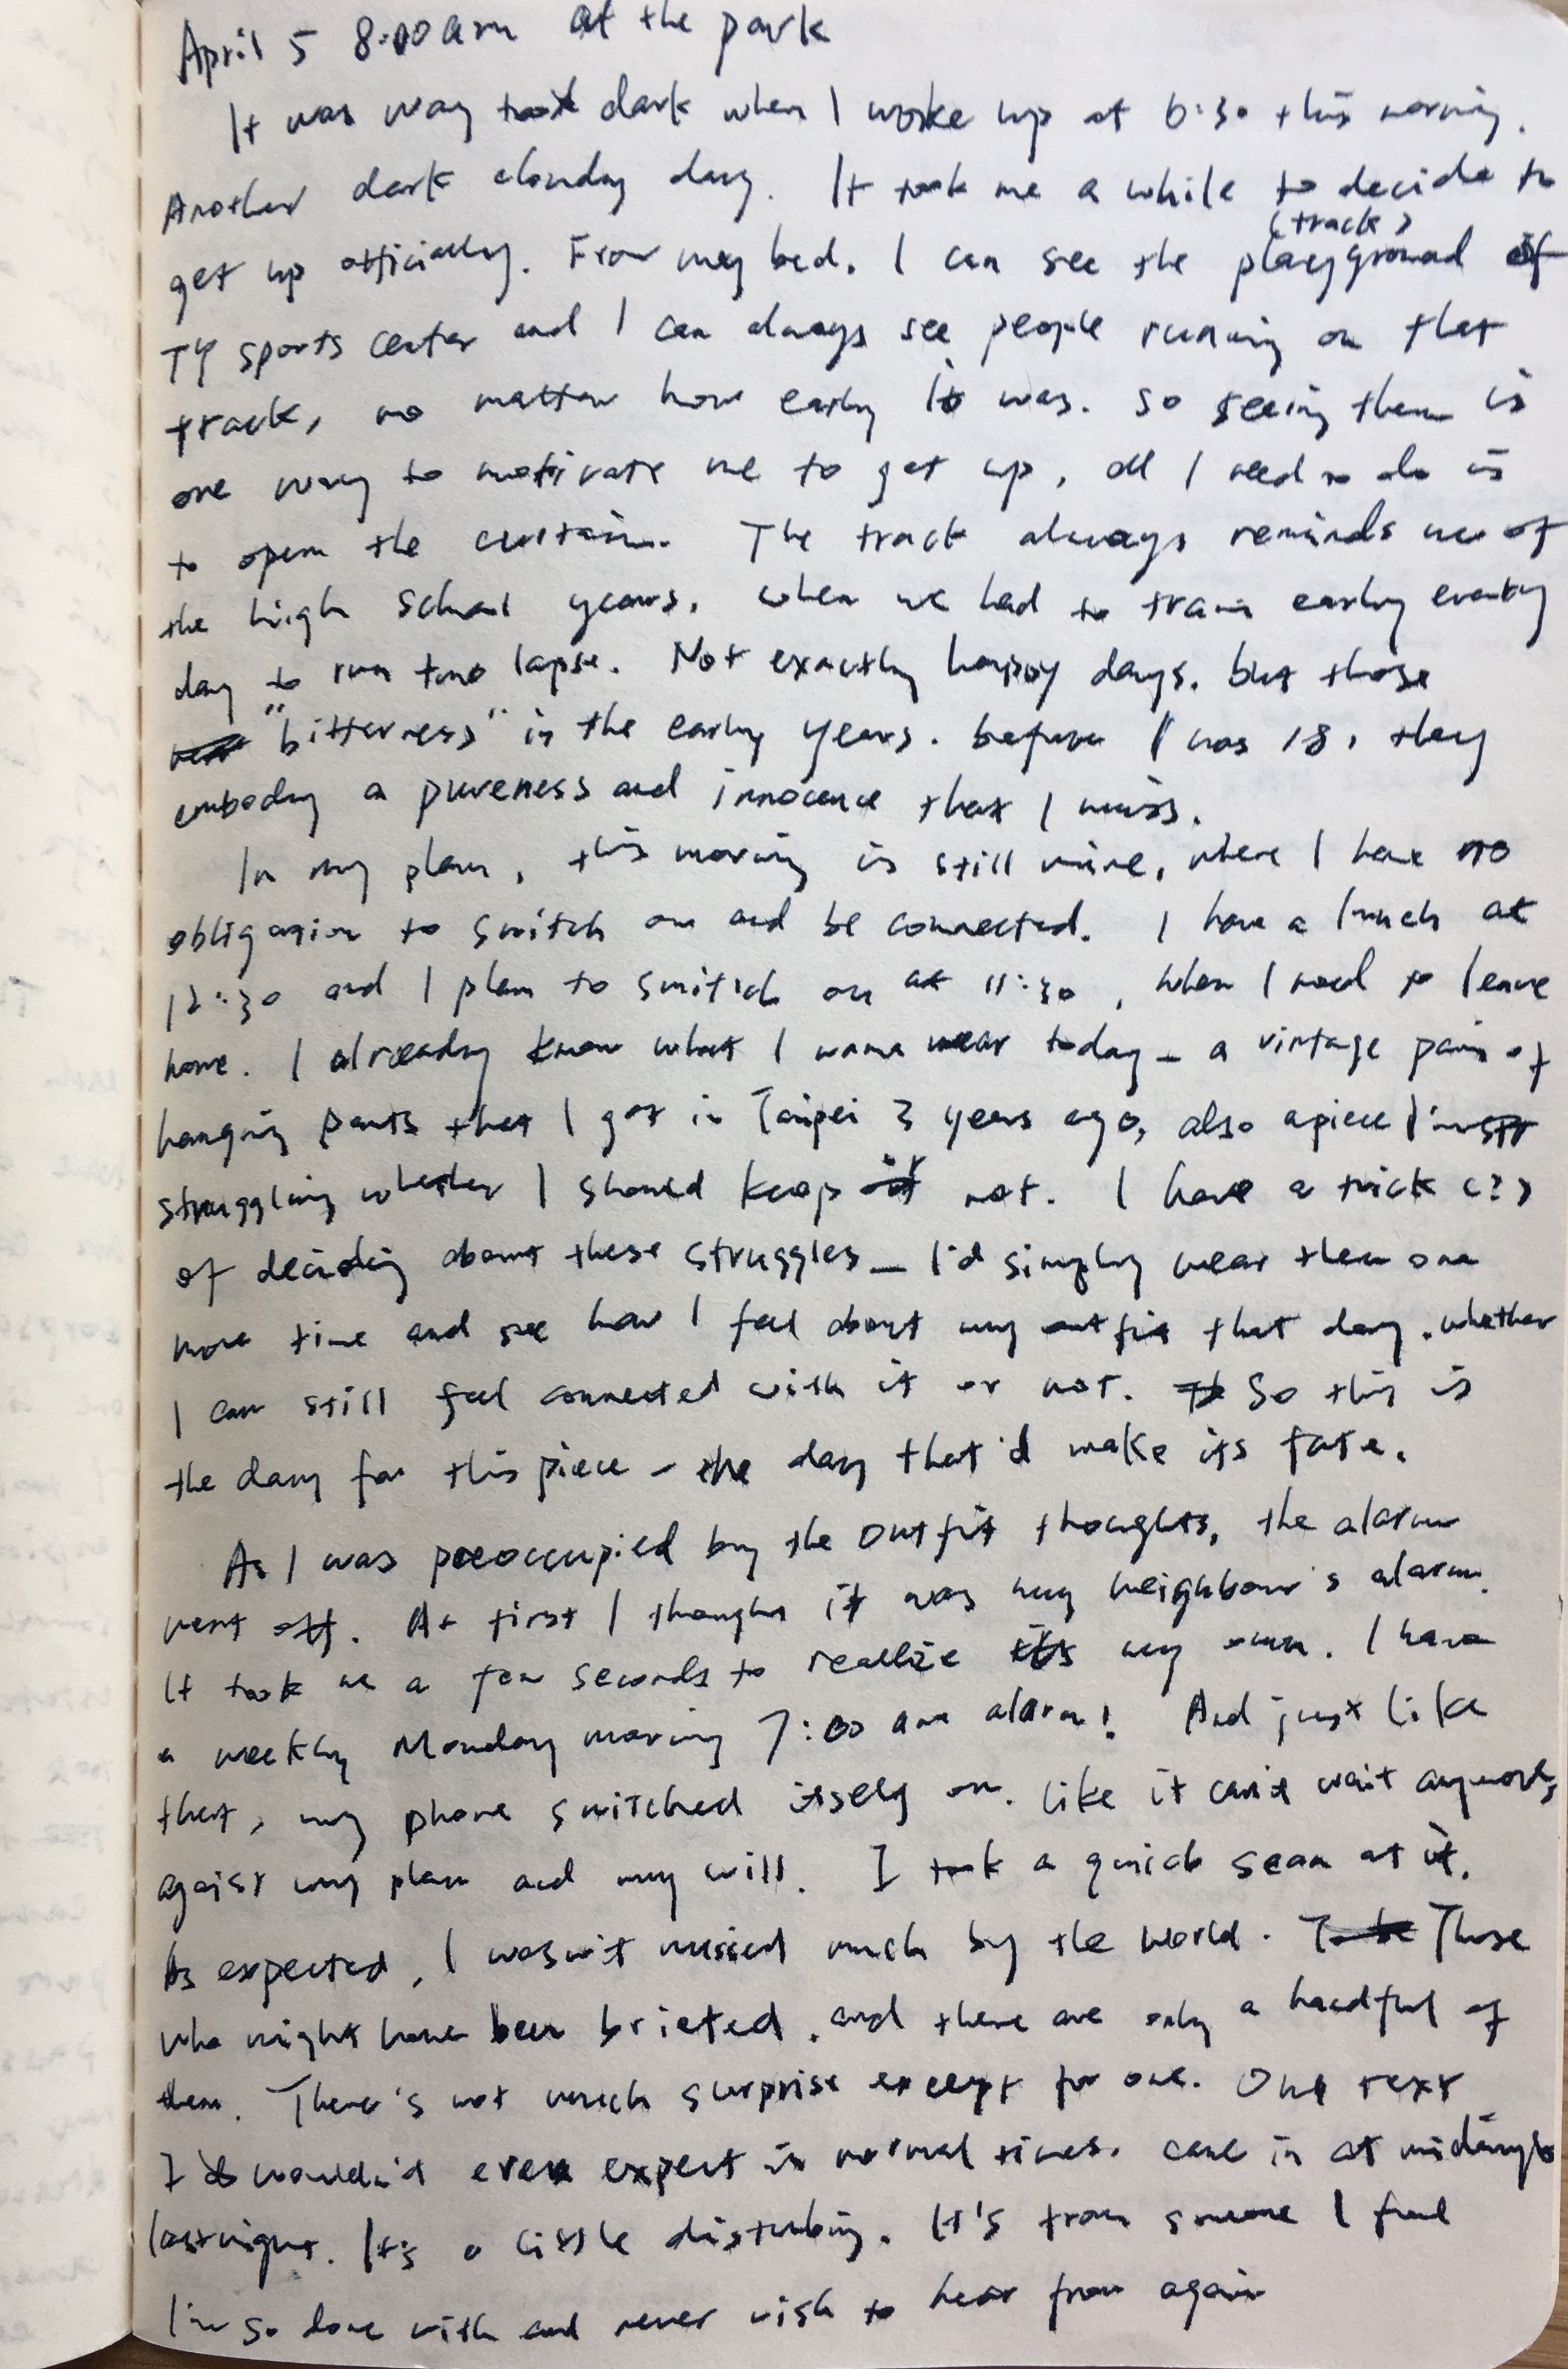 April 5 8:00am at the park
It was way too dark when I woke up at 6:30 this morning.
Another dark cloudy day. It took me a while to decide to
(track)
get up officially. From my bed, I can see the playground of
TY sports center and I can always see people running on that
track, no matter how early it was. So seeing them is
one way to motivate me to get up, all I need to do is
to open the curtain. The track always reminds me of
the high school years, when we had to train early every
day to run two lapse. Not exactly happy days, but those
"bitterness" in the early years, before I was 18, they
embody a pureness and innocence that I miss.
In my plan, this morning is still mine, where I have no
obligation to switch on and be connected. I have a lunch at
12:30 and I plan to switch on at 11:30, when I need to leave
home. I already know what I wanna wear today - a vintage pair of
hanging pants that I got in Taipei 3 years ago, also a piece I'm
struggling whether I should keep or not. I have a trick (?)
of deciding about these struggles - I'd simply wear them one
more time and see how I feel about my outfit that day, whether
I can still feel connected with it or not. So this is
the day for this piece - the day that'd make its fate.
As I was preoccupied by the outfit thoughts, the alarm
went off. At first I thought it was my neighbour's alarm.
It took me a few seconds to realize it's my own. I have
a weekly Monday morning 7:00 am alarm! And just like
that, my phone switched itself on. like it can't wait anymore,
agaist my plan and my will. I took a quick scan at it.
As expected, I wasn't missed much by the world. Those
who might have been briefed, and there are only a handful of
them. There's not much surprise except for one. One text
I wouldn't even expect in normal times. came in at midnight
last night. It's a little disturbing. It's from someone I feel
I'm so done with and never wish to hear from again